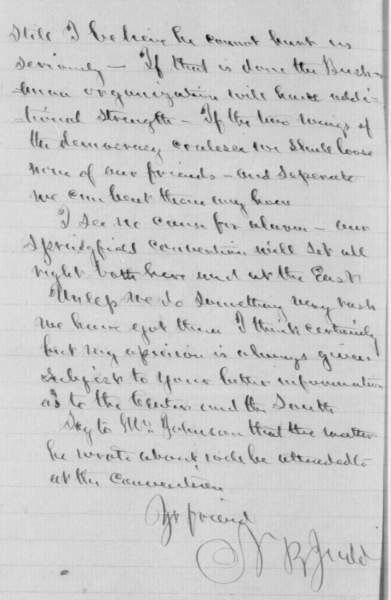 Still I believe he cannot hurt us
seriously — If that is done the Buch-
anan organization will have addi-
tional strength — If the two wings of
the democracy coalesce we shall loose
none of our friends — and seperate
we can beat them any how
I see no cause for alarm — our
Springfield convention will set all
right both here and at the East.
Unless we do something very rash
we have got them I think certainly
but my opinion is always given
subject to your better information
as to the Center and the South
Say to Mr. Johnson that the matter
he wrote about will be attended to
at the Convention
Yr friend
N B Judd